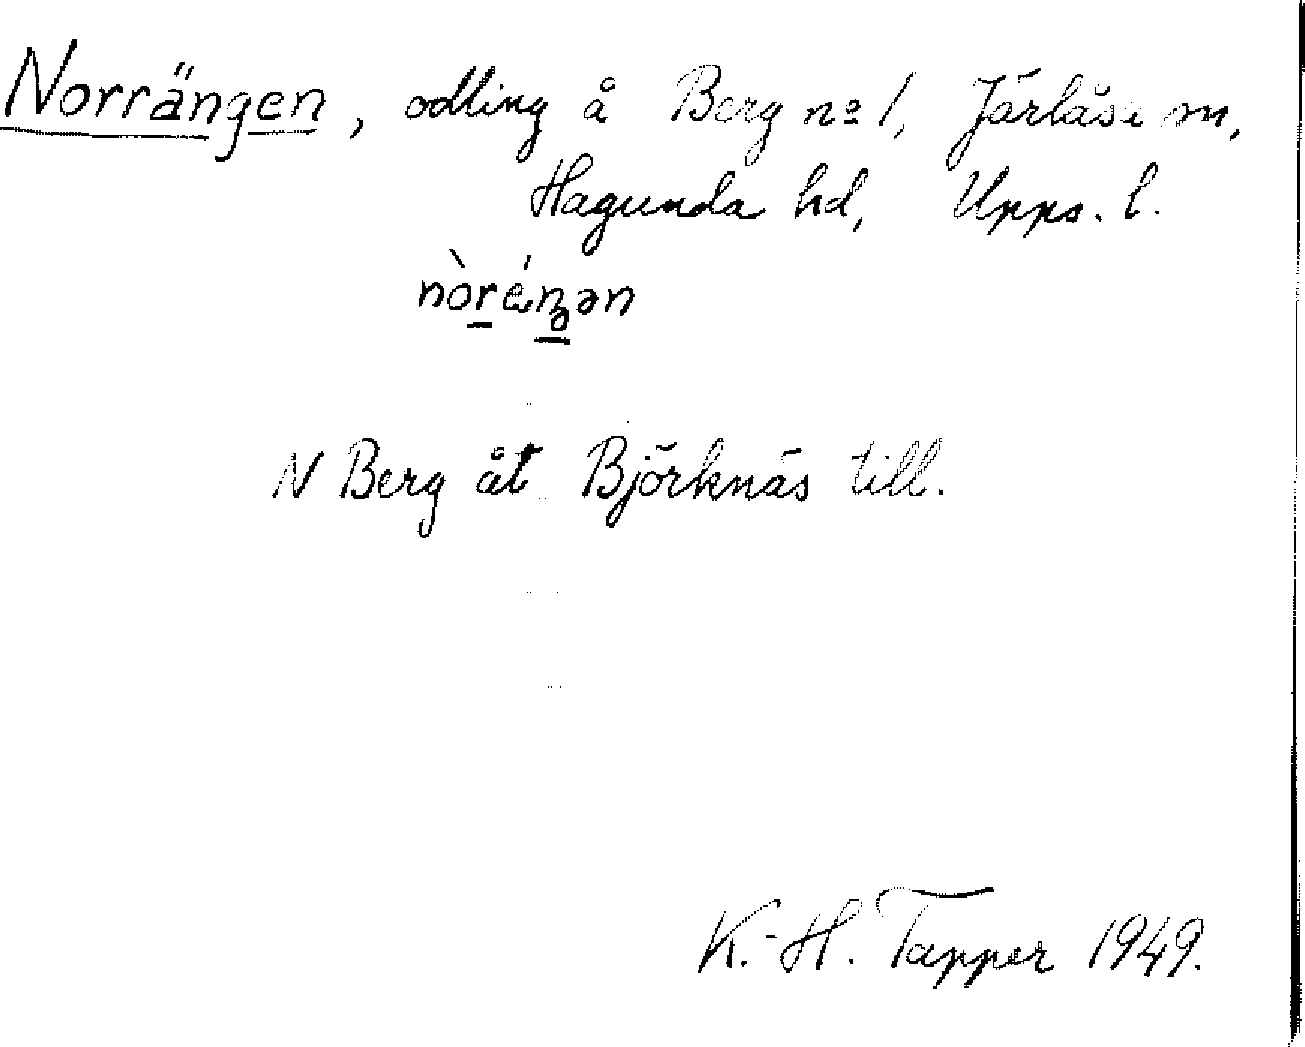 Norrängen, odling å Berg nº 1, Järlåsa sn,
Hagunda hd, Upps. l.
nòréŋən
N Berg åt Björknäs till.
K.-H. Tapper 1949.